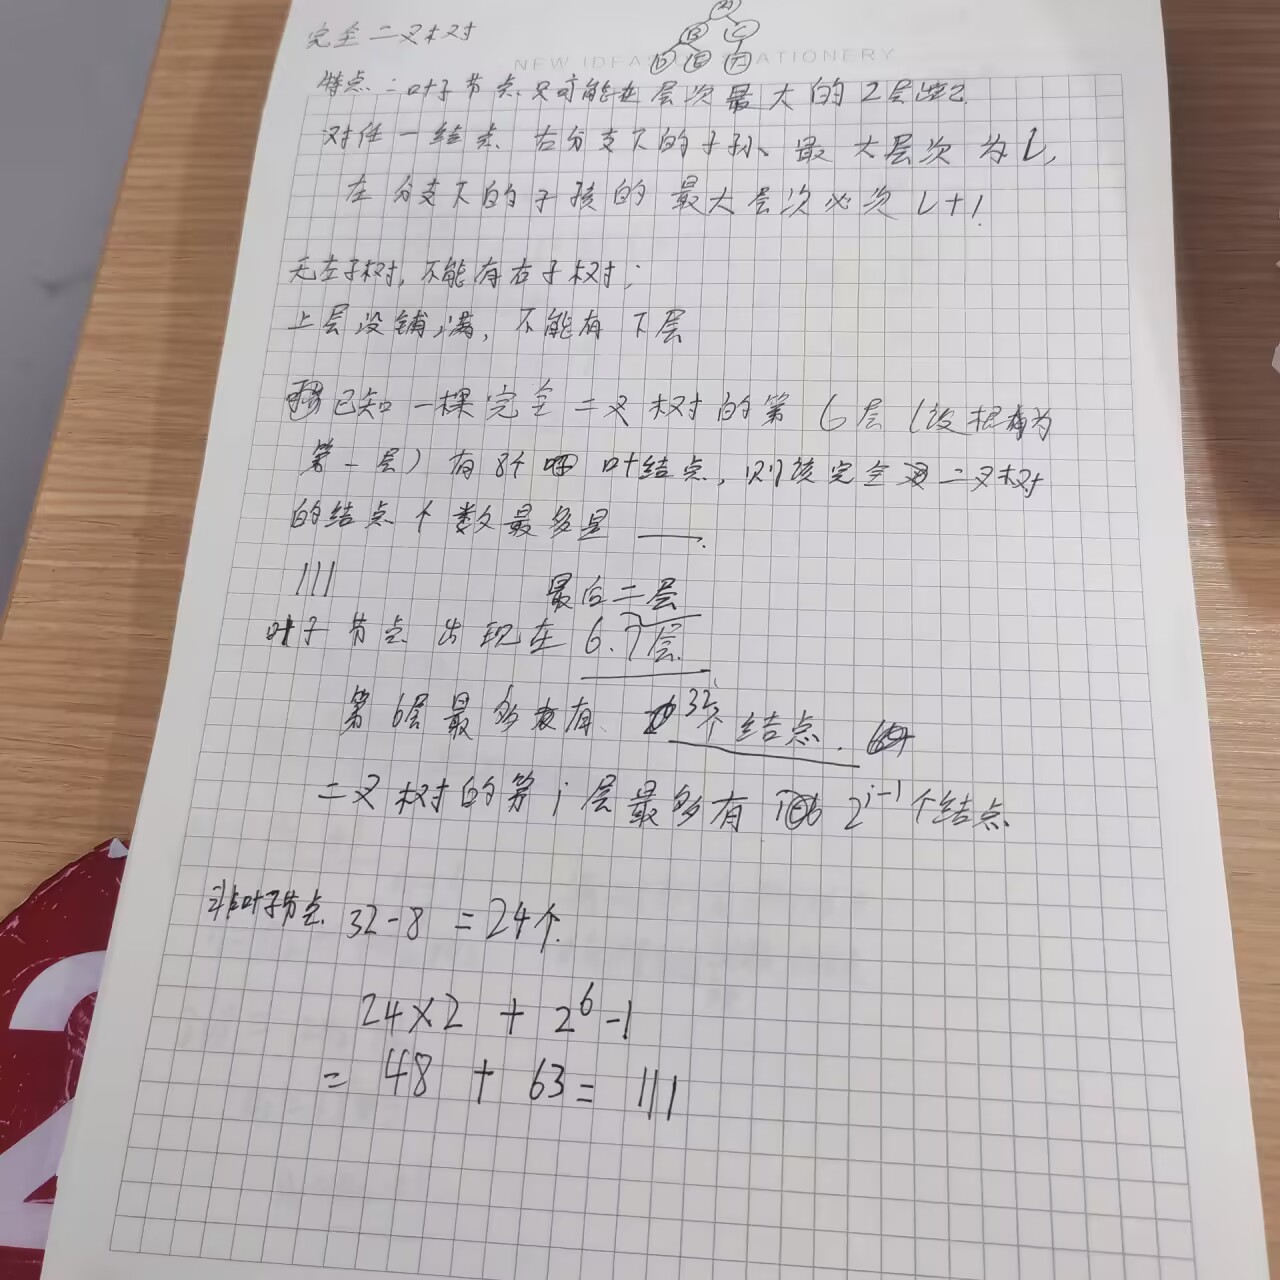 完全二叉树
A
B C
D E F
NEW IDEAS STATIONERY
特点:叶子节点只可能在层次最大的2层出现
对任一结点 右分支下的子孙 最大层次为l,
左分支下的子孩的最大层次必次 L+1
无左子树,不能有右子树;
上层没铺满,不能有下层
已知一棵完全二叉树的第6层(设根为
第一层)有8个叶结点,则该完全二叉树
的结点个数最多是 ___.
111
最后二层
叶子节点出现在6.7层.
第6层最多有 32个结点.
二叉树的第i层最多有 2^{i-1}个结点
非叶子节点 32-8 =24个.
24×2 + 2^6-1
= 48 + 63 = 111
2